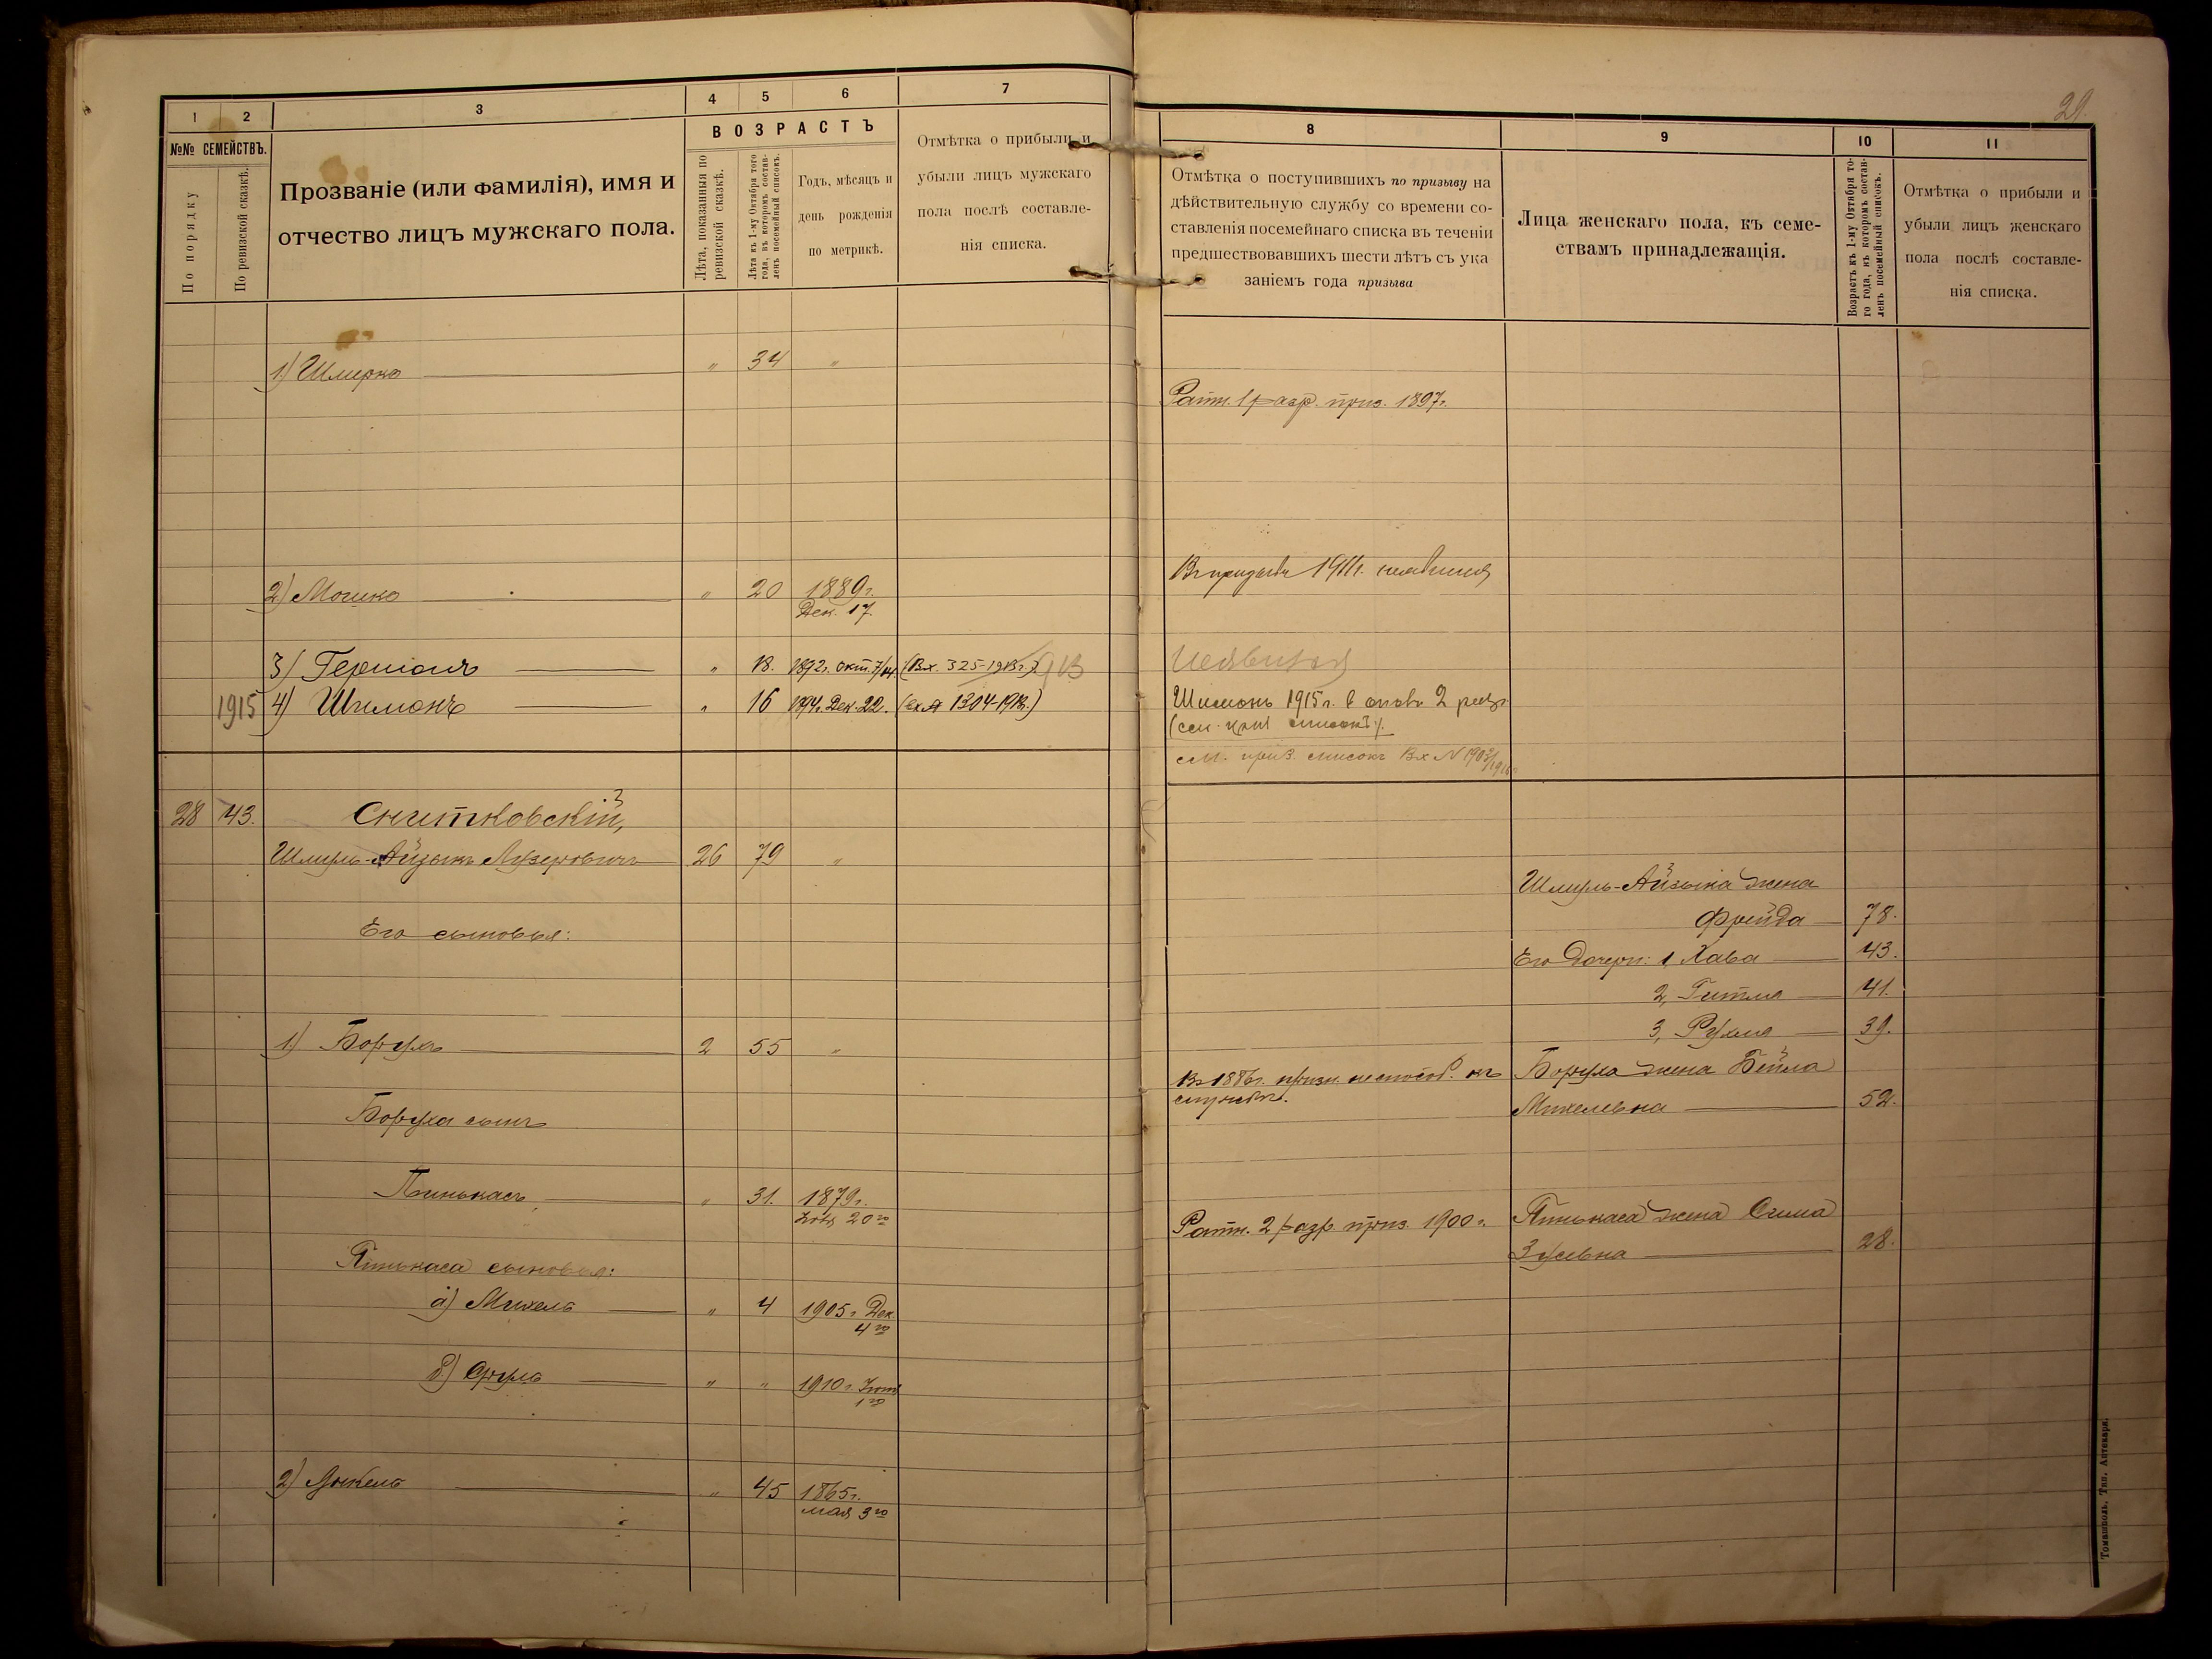 29.
1 2 3 4 5 6 7
№№ СЕМЕЙСТВЪ.
По порядку
По ревизской сказкѣ.
Прозваніе (или фамилія), имя и
отчество лицъ мужскаго пола.
ВОЗРАСТЪ
Лѣта, показанныя по
ревизской сказкѣ.
Лѣта къ 1-му Октября того
года, въ которомъ состав-
ленъ посемейный списокъ.
Годъ, мѣсяцъ и
день рожденія
по метрикѣ.
Отмѣтка о прибыли и
убыли лицъ мужскаго
пола послѣ составле-
нія списка.
1) Шмерко " 34 "
2) Мошко " 20 1889г.
Дек. 17.
3) Гершонъ " 18. 1892г. окт. 7/14. (Вх. 325-1913г.)
1915 4) Шимонъ " 16 1894г. Дек. 22. (вх.№ 1304-1913г.)
28 43. Снитковскій,
Шмуль-Айзыкъ Лузеровичъ 26 79 "
Его сыновья:
1) Борухъ 2 55 "
Боруха сынъ
Пинькасъ, " 31. 1879г.
20го
Пинькаса сыновья:
а) Михель " 4 1905г. Дек.
4го
б) Сруль " " 1910г.
1го
2) Янкель " 45 1865г.
мая 3го
8 9 10 11
Отмѣтка о поступившихъ по призыву на
дѣйствительную службу со времени со-
ставленія посемейнаго списка въ теченіи
предшествовавшихъ шести лѣтъ съ ука
заніемъ года призыва
Лица женскаго пола, къ семе-
ствамъ принадлежащія.
Возрастъ къ 1-му Октября то-
го года, къ которомъ состав-
ленъ посемейный списокъ.
Отмѣтка о прибыли и
убыли лицъ женскаго
пола послѣ составле-
нія списка.
Ратн. 1 разр. приз. 1897г.
Въ призывъ 1911г. неявился
Неявился
Шимонъ 1915г. 2 разр
см. приз. списокъ Вх №
Шмуль-Айзыка жена
Фрейда 78.
Его дочери: 1 Хава 43.
2, Гитля 41.
3, Рухля 39.
Въ 1886г. призн. неспособ. къ
службѣ.
Боруха жена Бейла
Михелевна 52.
Ратн. 2 разр приз. 1900г.
Пинькаса жена Сима
Зусевна 28.
Томашполь. Тип. Аптекаря.